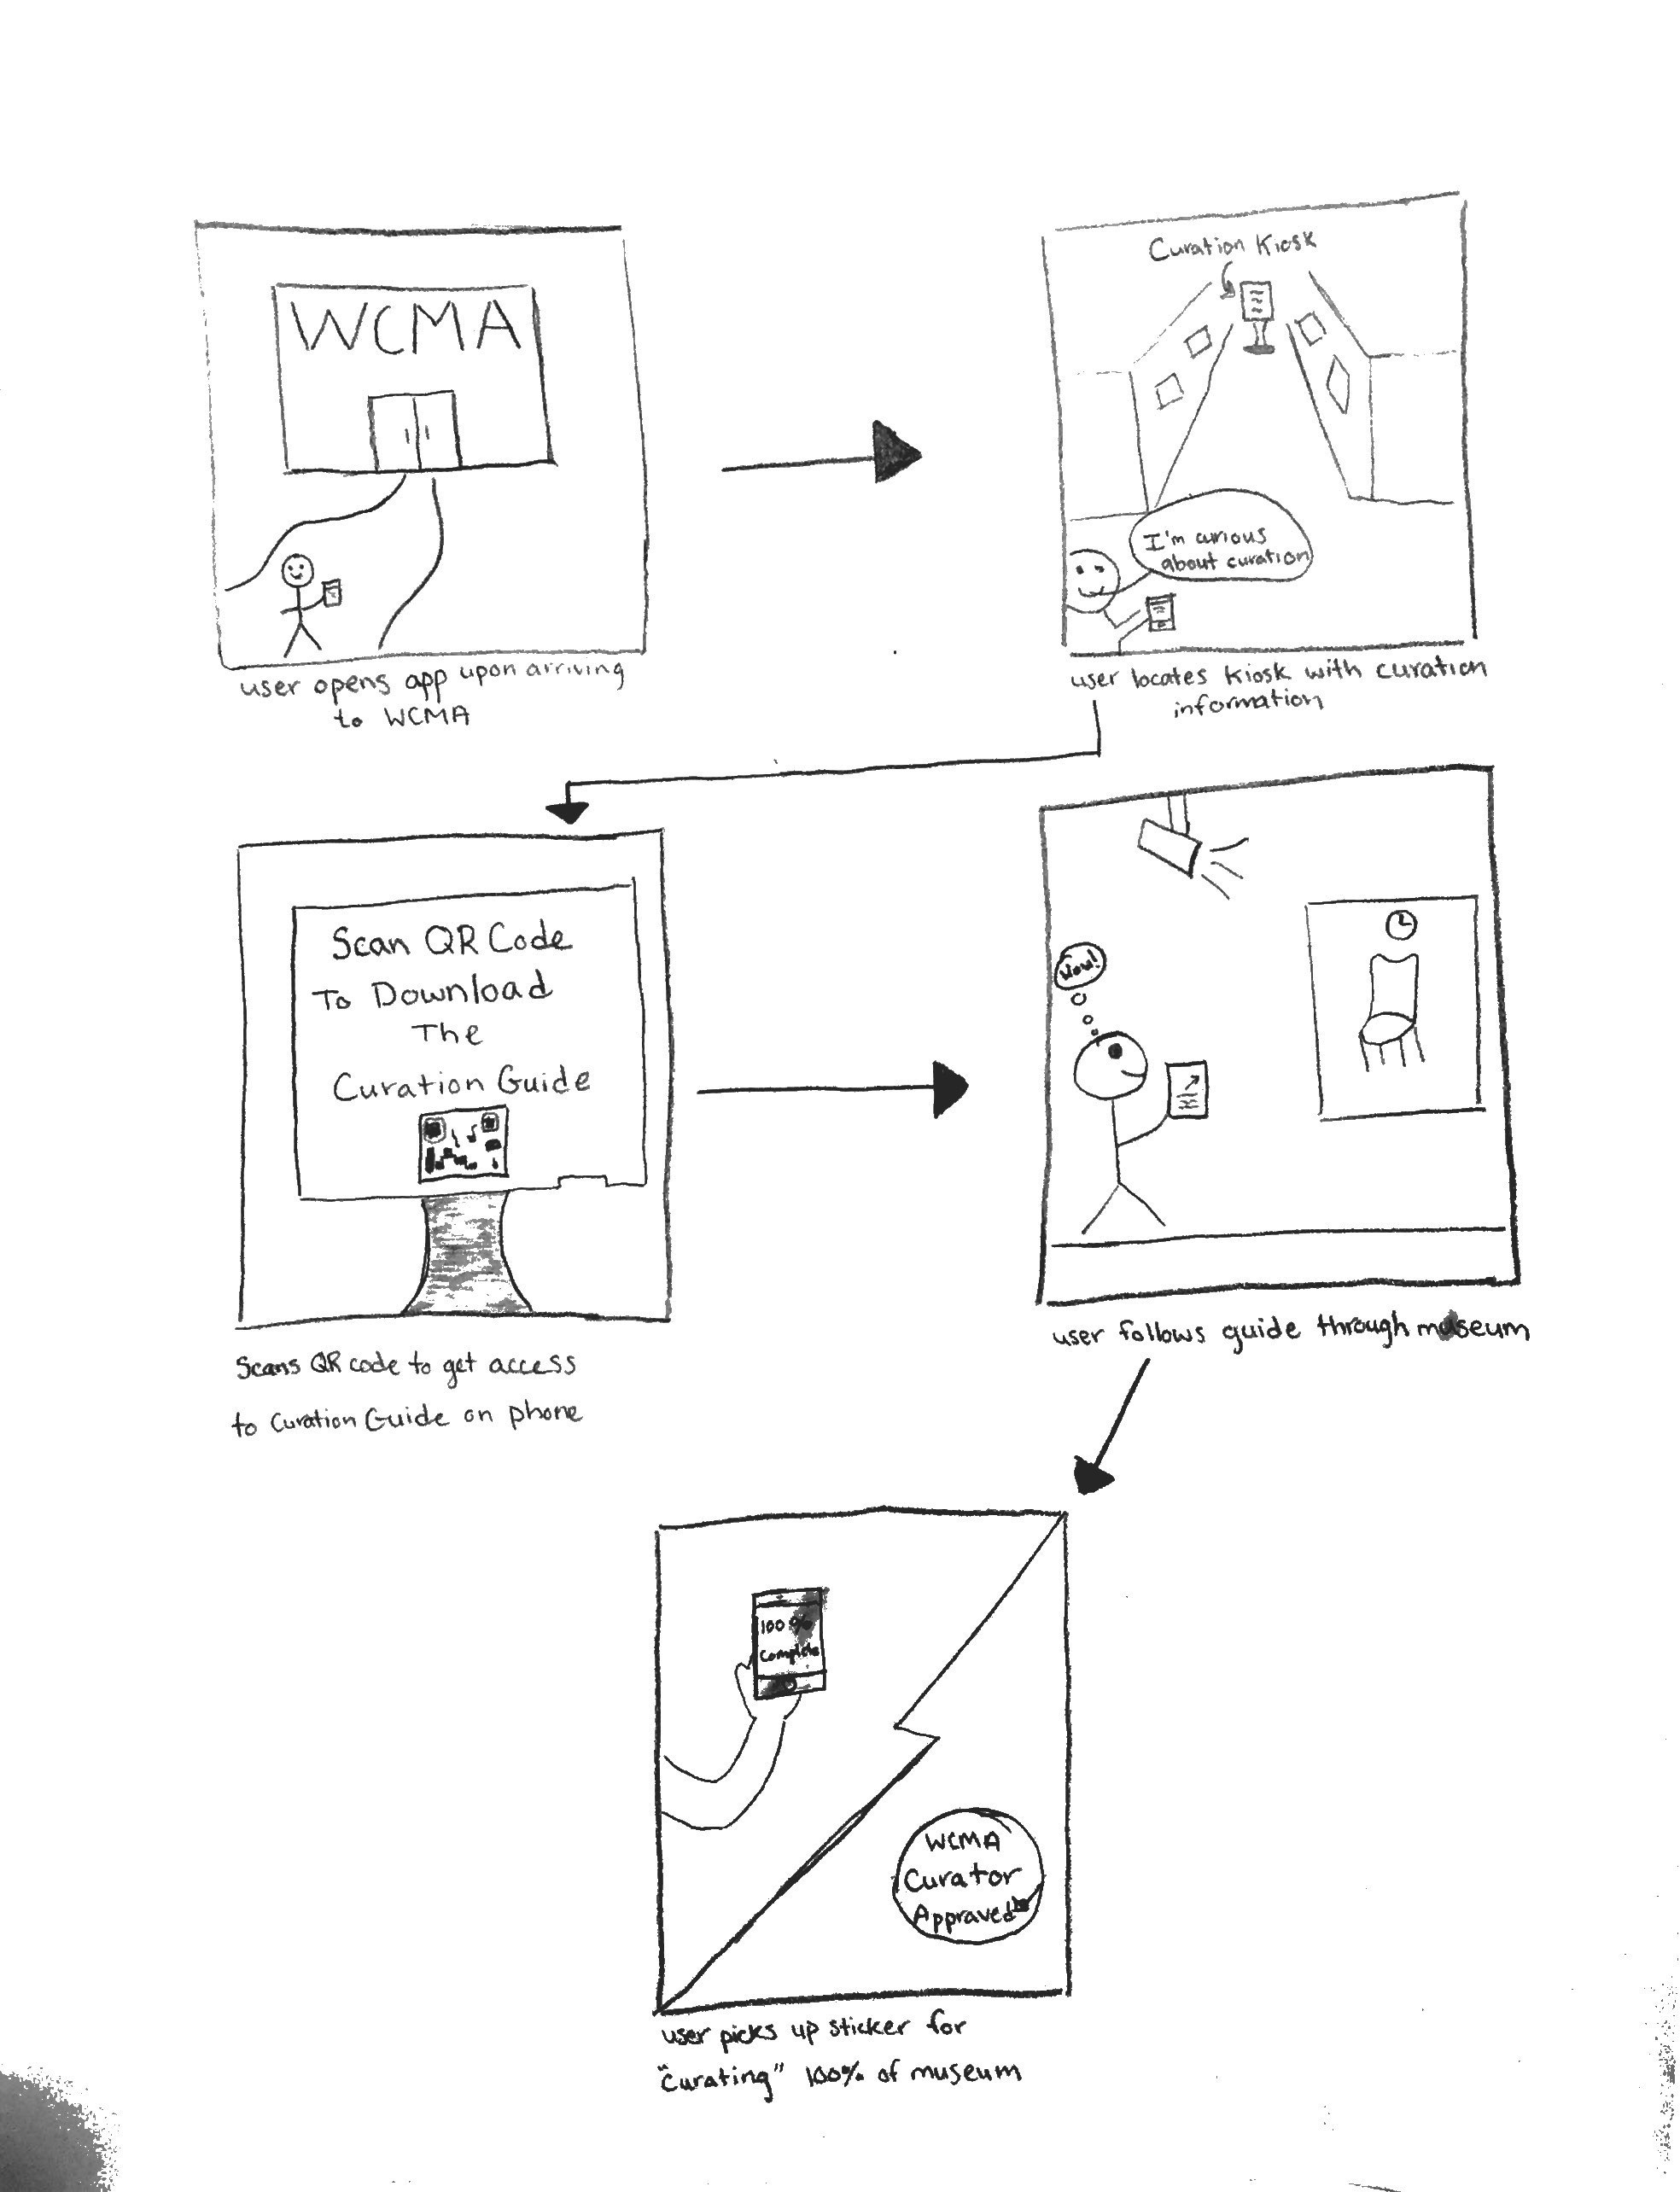 WCMA
user opens app upon arriving
to WCMA
Curation Kiosk
I'm curious
about curation
user locates Kiosk with curation
information
Scan QR Code
To Download
The
Curation Guide
Scans QR code to get access
to Curation Guide on phone
Wow!
user follows guide through museum
100%
Complete
WCMA
Curator
Appraved
user picks up sticker for
"Curating" 100% of museum